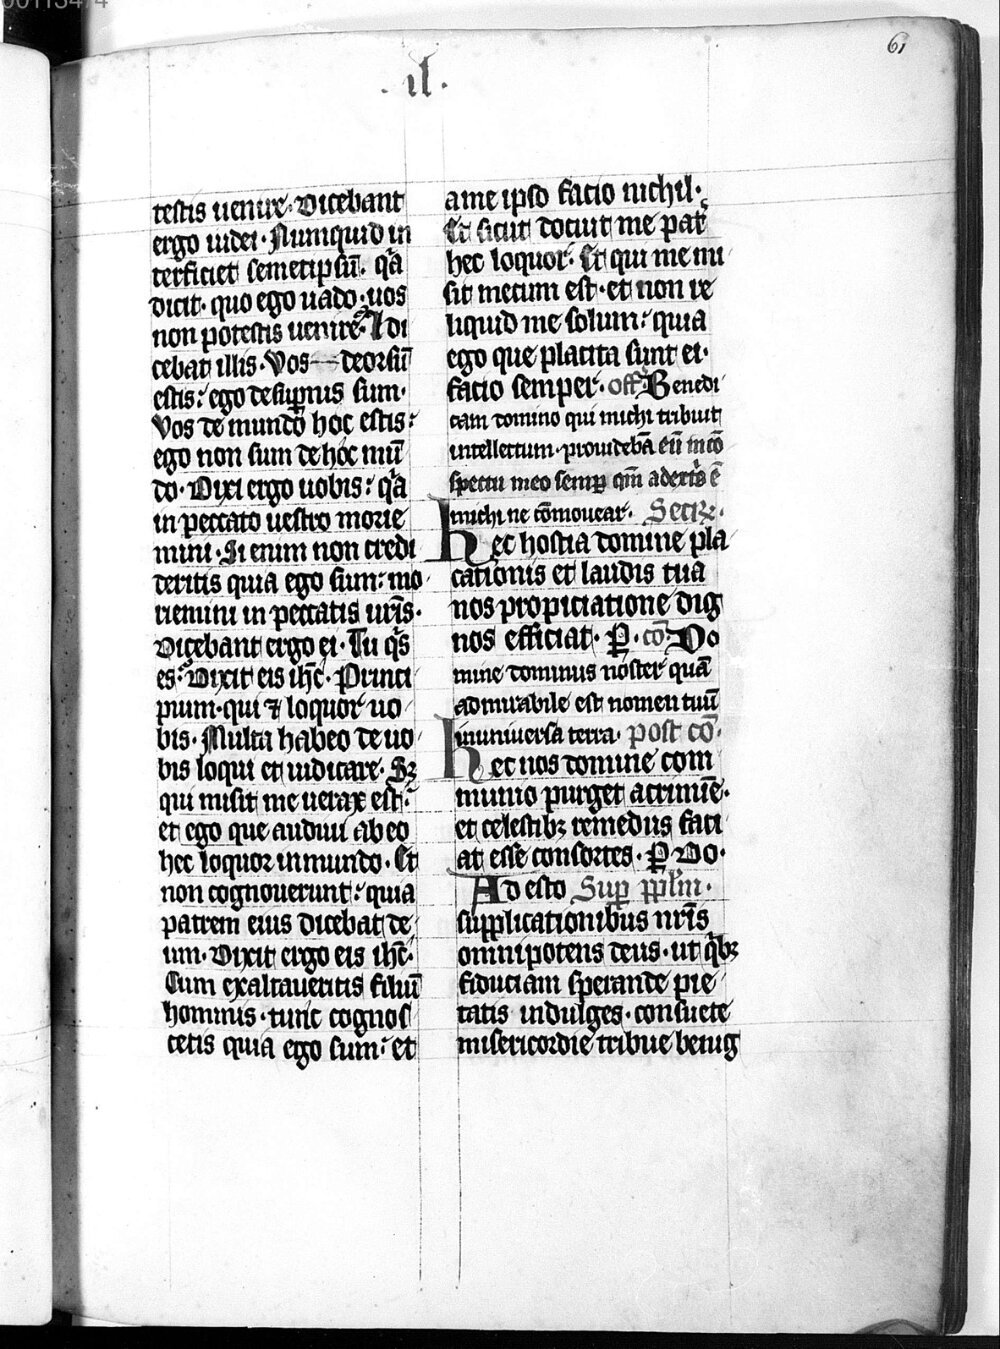 00113474
61
·il·
testis uenire· Dicebant
ergo iudei· Numquid in
terficiet semetipsū· qͣa
dicit· quo ego uado· uos
non potestis uenire· Et di
cebat illis· Vos deorsū
estis: ego desup̄nis sum·
Vos de mundo hoc estis:
ego non sum de hoc mū
do· Dixi ergo uobis: qͣa
in peccato uestro morie
mini· Si enim non credi
deritis quia ego sum: mo
riemini in peccatis ur̄is·
Dicebant ergo ei· Tu qͥs
es· Dixit eis ihc̄· Princi
pium· qui ⁊ loquor uo
bis· Multa habeo de uo
bis loqui et iudicare· Sꝫ
qui misit me uerax est:
et ego que audiui ab eo
hec loquor in mundo· Et
non cognouerunt: quia
patrem eius dicebat de
um· Dixit ergo eis ihc̄·
Cum exaltaueritis filiū
hominis· tunc cognos
cetis quia ego sum: et
a me ipso facio nichil·
Et sicut docuit me pat̄
hec loquor: Et qui me mi
sit mecum est· et non re
liquid me solum: quia
ego que placita sunt ei·
facio semper· off̄· Benedi
cam domino qui michi tribuit
intellectum· prouidebā eū in cō
spectu meo semꝑ qm̄ a dextͥs ē
michi ne cōmouear· Secrꝫ·
hec hostia domine pla
cationis et laudis tua
nos propiciatione dig
nos efficiat· P̲· cō· Do
mine dominus noster quā
admirabile est nomen tuū
in uniuersa terra· post cō·
hec nos domine com
munio purget a crimīe·
et celestibꝫ remediis faci
at esse consortes· P̲ Do·
Ad esto Suꝑ pp̄lm·
supplicationibus nr̄is
omnipotens deus· ut qͥbꝫ
fiduciam sperande pie
tatis indulges· consuete
misericordie tribue benig